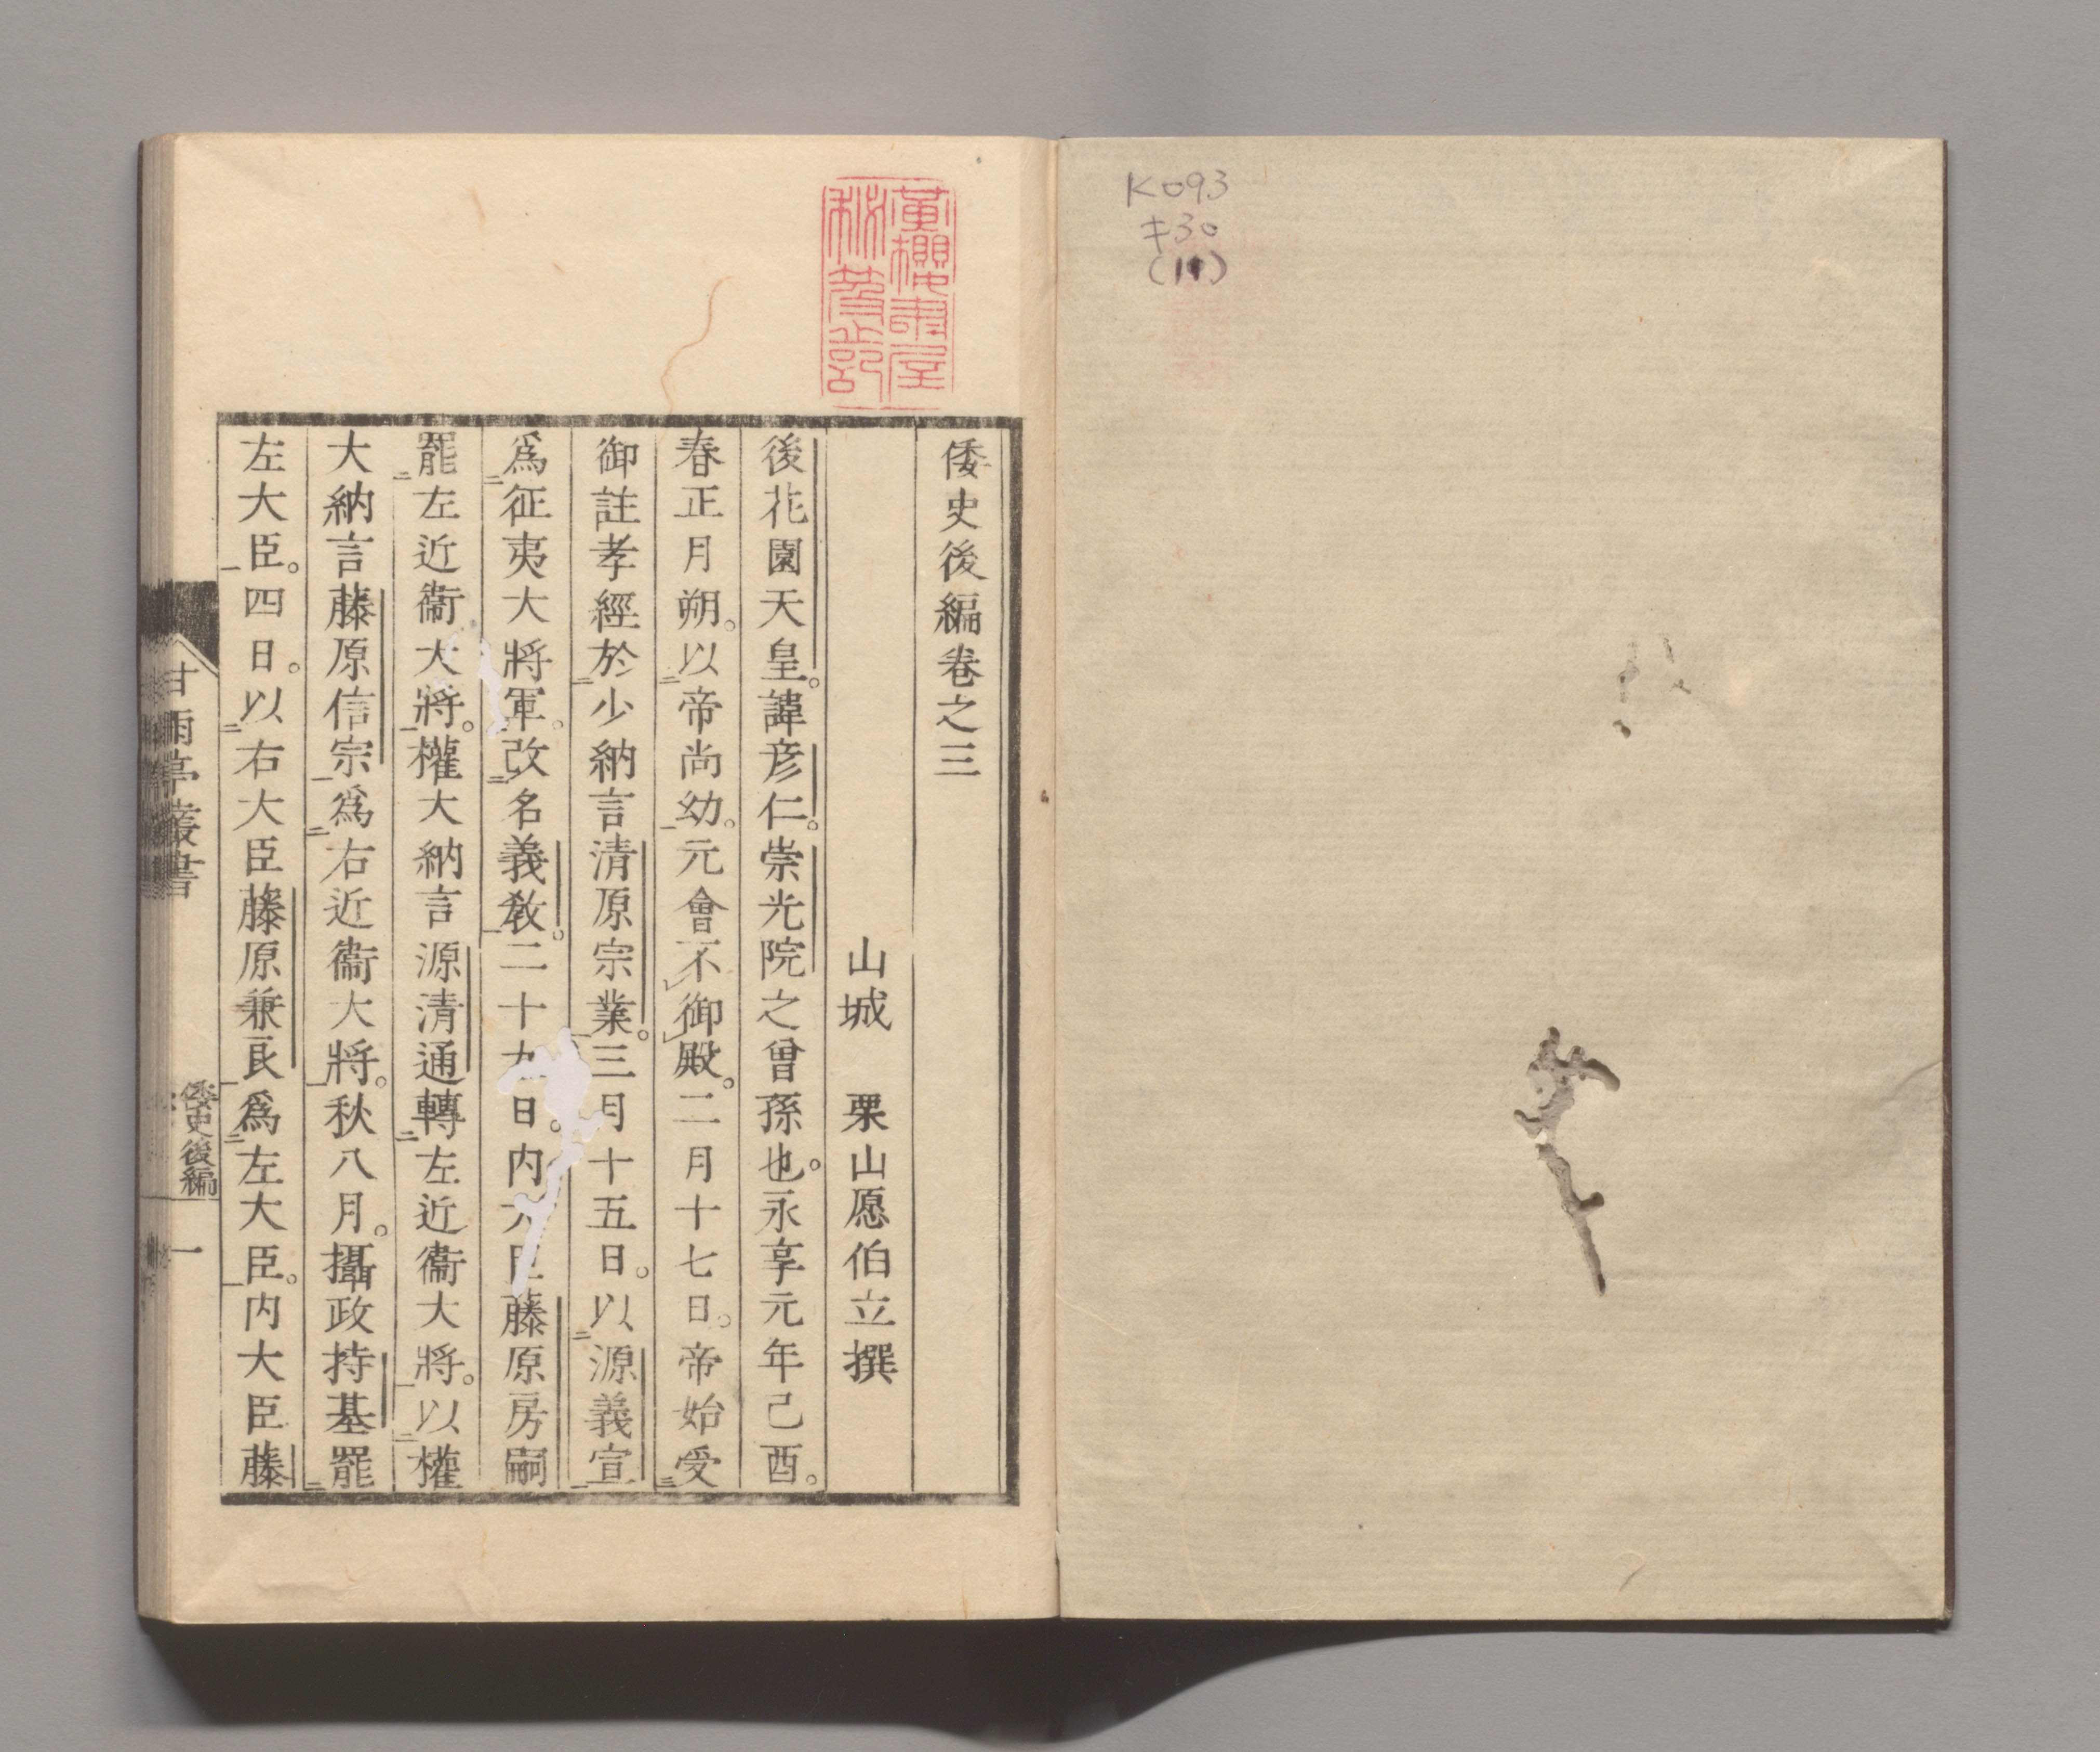 K093
キ30
(11)
倭史後編卷之三
山城 栗山愿伯立撰
後花園天皇。諱彦仁。崇光院之曾孫也。永享元年己酉。
春正月朔。以帝尚幼。元會不御殿。二月十七日。帝始受
御註孝經於少納言清原宗業。三月十五日。以源義宣
爲征夷大將軍。改名義教。二十九日。内大臣藤原房嗣
罷左近衞大將。權大納言源清通轉左近衞大將。以權
大納言藤原信宗爲右近衞大將。秋八月。攝政持基罷
左大臣。四日。以右大臣藤原兼良爲左大臣。内大臣藤
甘雨亭叢書
倭史後編
一